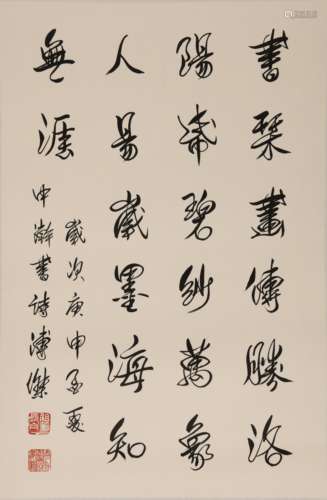 書琹畫傳勝洛
陽碧紗萬象
人易歲墨海知
無涯
歲次庚申夏
中澣書詩溥傑